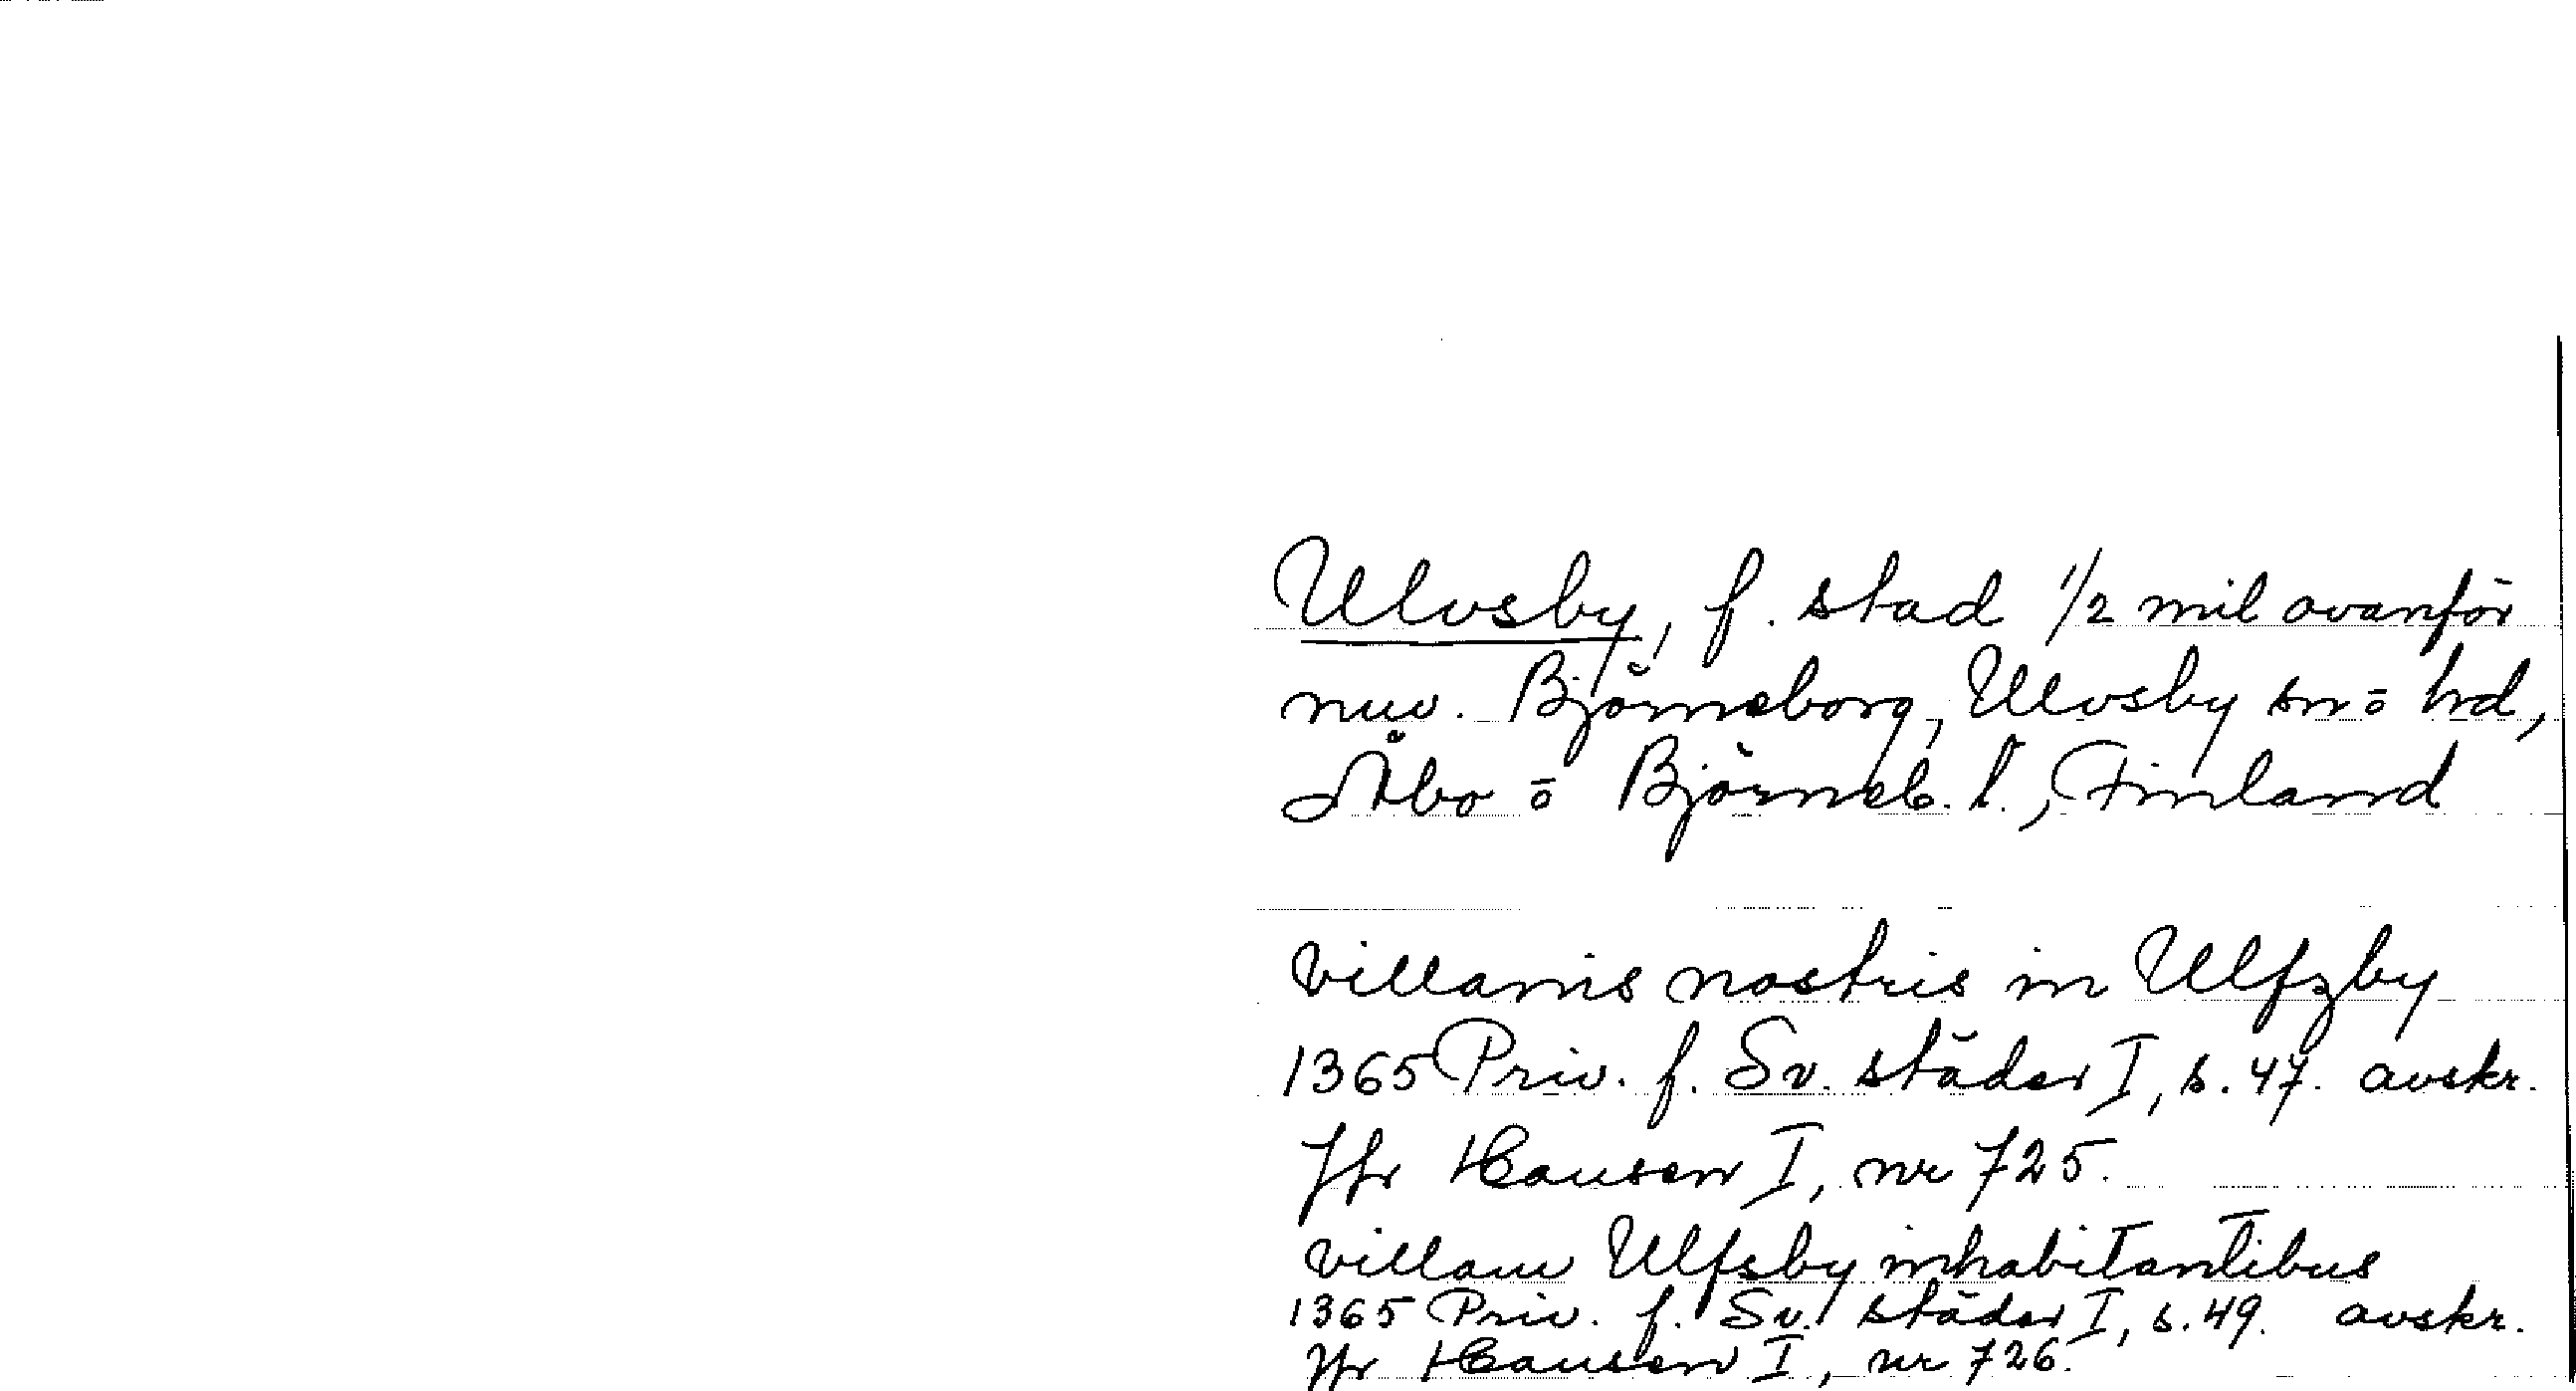 Ulvsby, f. stad 1/2 mil ovanför
nuv. Björneborg, Ulvsby sn o hd,
Åbo o Björneb. l., Finland
villanis nostris in Ulfzby
1365 Priv. f. Sv. städer I, s. 47. avskr.
Jfr Hausen I, nr 725.
villam Ulfsby inhabitantibus
1365 Priv. f. Sv. städer I, s. 49. avskr.
Jfr Hausen I, nr 726.